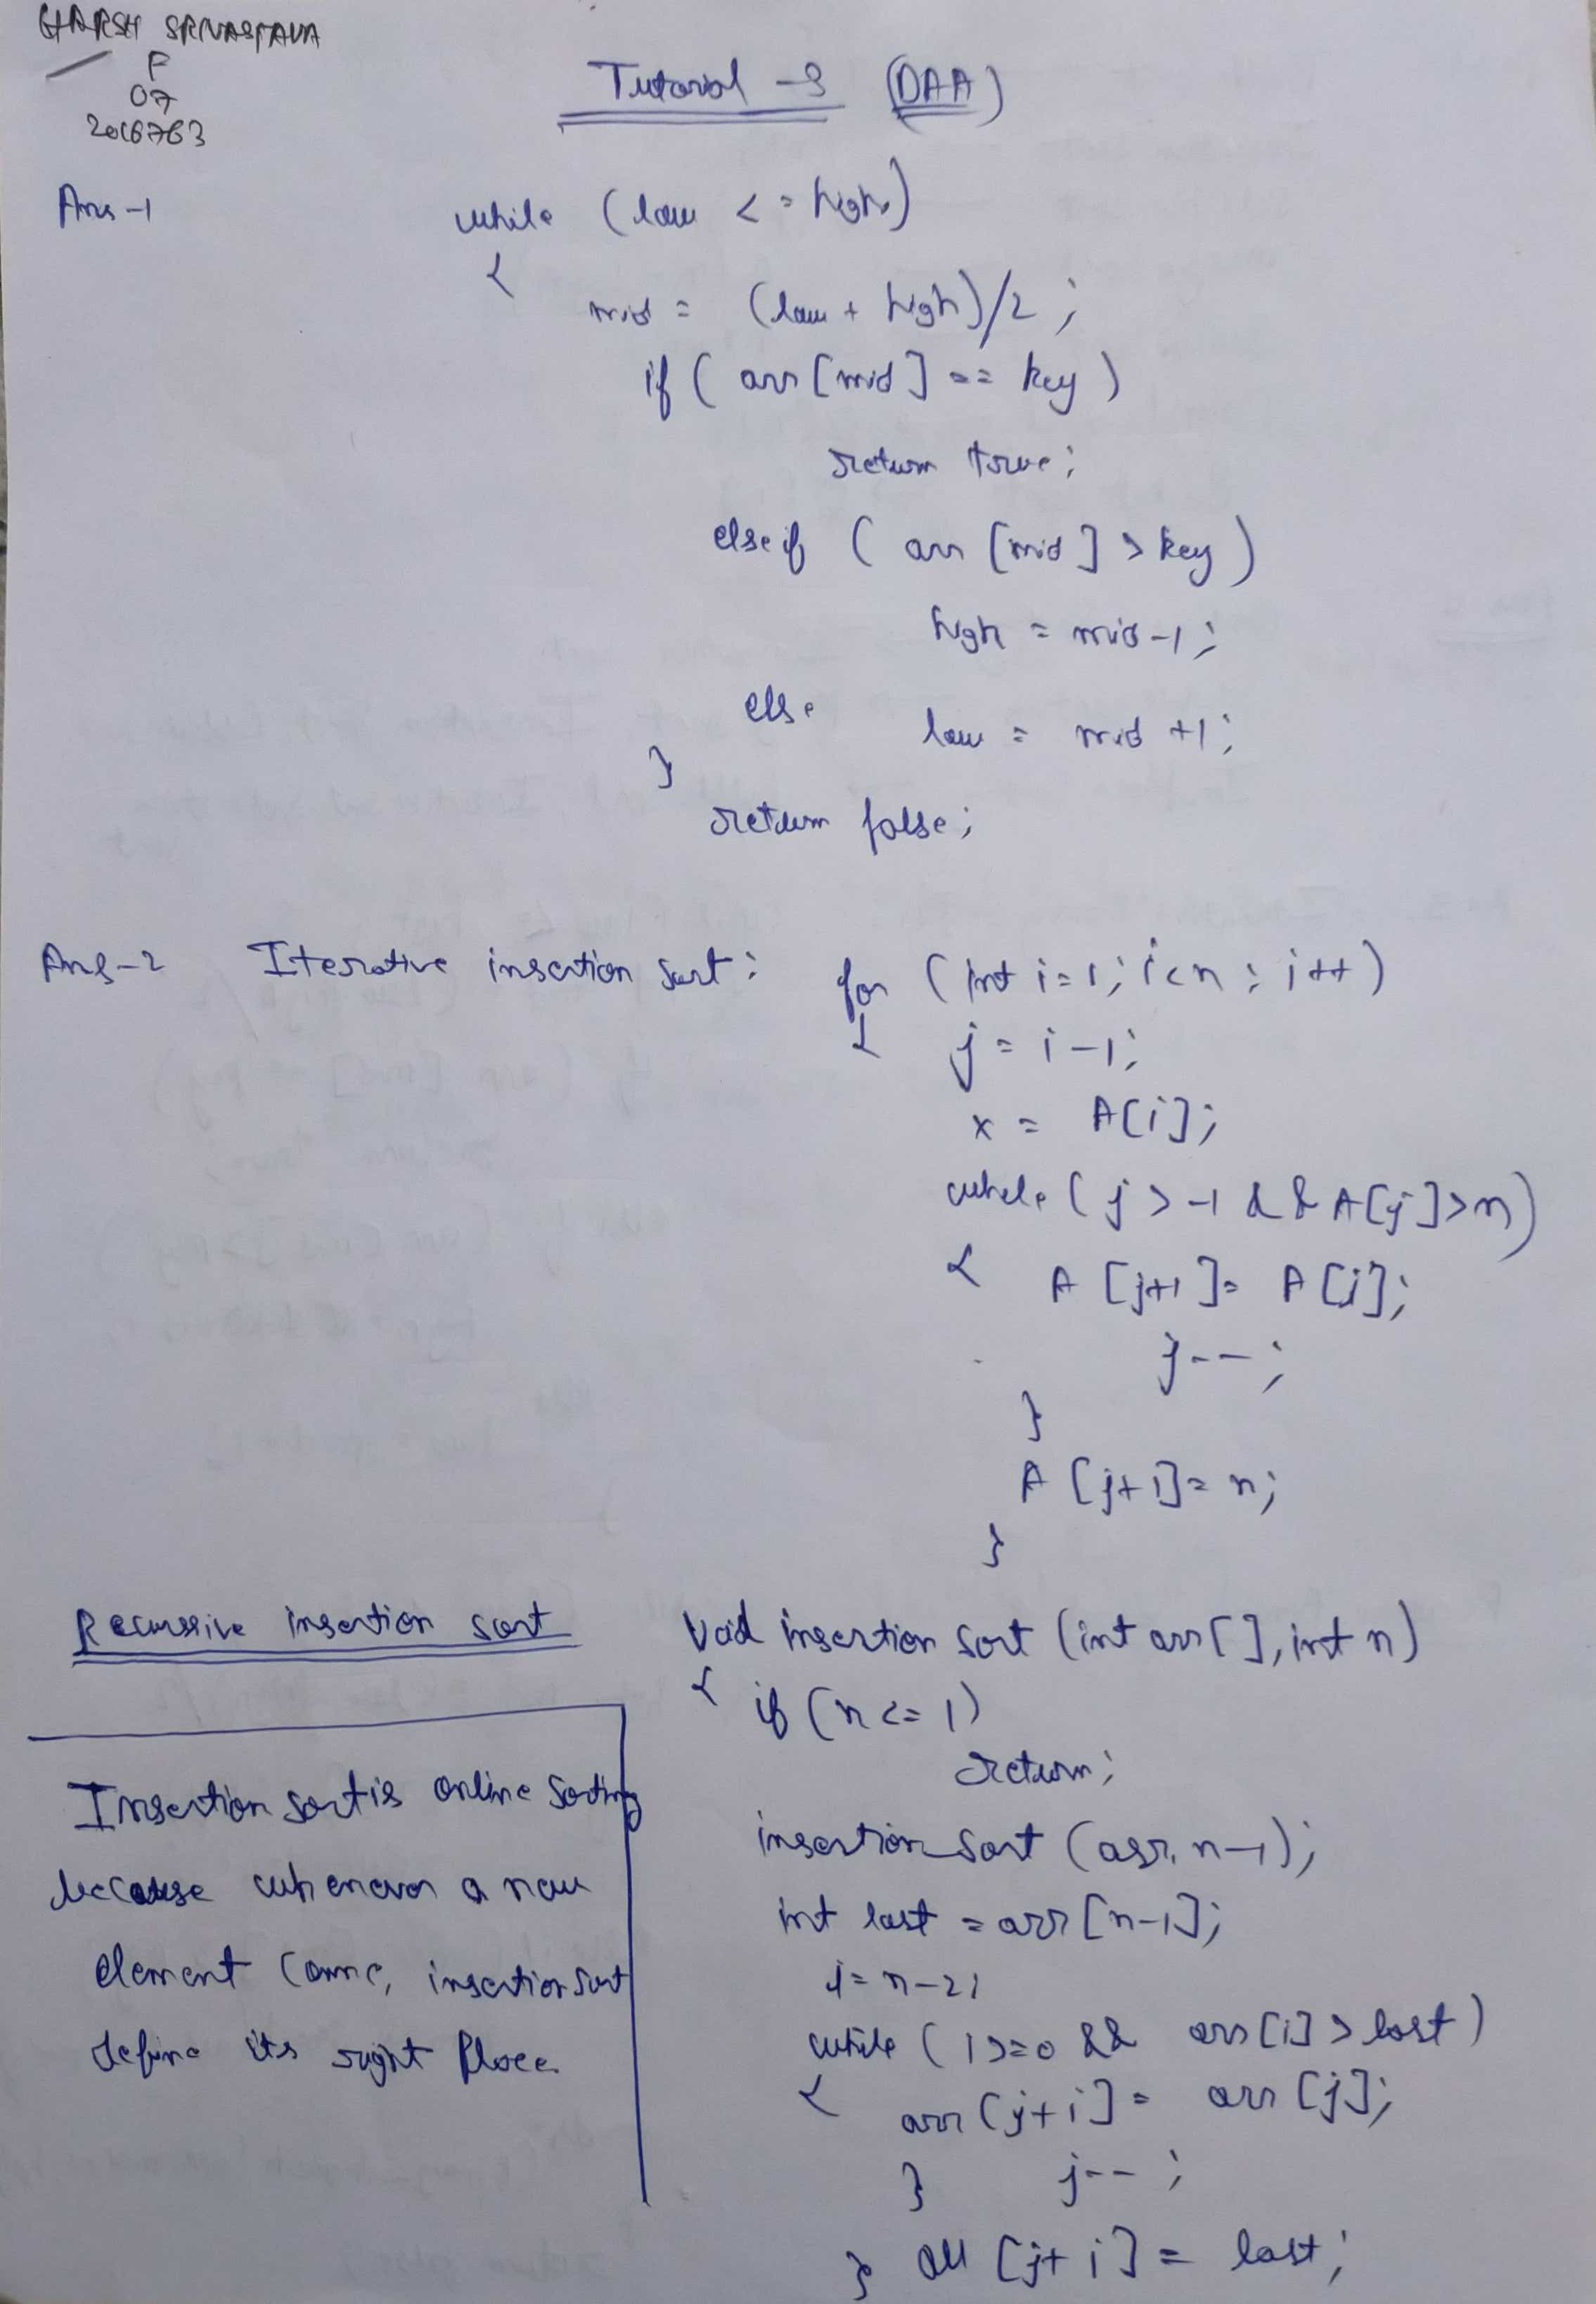 HARSH SRIVASTAVA
F
07
2016763
Tutorial -3 (DAA)
Ans-1
while (low <= high)
{
mid = (low + high)/2;
if (arr[mid] == key)
return true;
else if (arr[mid] > key)
high = mid-1;
else
low = mid+1;
}
return false;
Ans-2 Iterative insertion sort: for (int i=1; i<n; i++)
{ j = i-1;
x = A[i];
while (j > -1 && A[j] > n)
{ A[j+1] = A[j];
j--;
}
A[j+1] = n;
}
Recurssive insertion sort
Void insertion sort (int arr[], int n)
{ if (n <= 1)
return;
insertion sort (arr, n-1);
int last = arr[n-1];
j = n-2;
while (j >= 0 && arr[j] > last)
{ arr[j+1] = arr[j];
j--;
}
} arr[j+1] = last;
Insertion sort is online sorting
because whenever a new
element come, insertion sort
define its right place